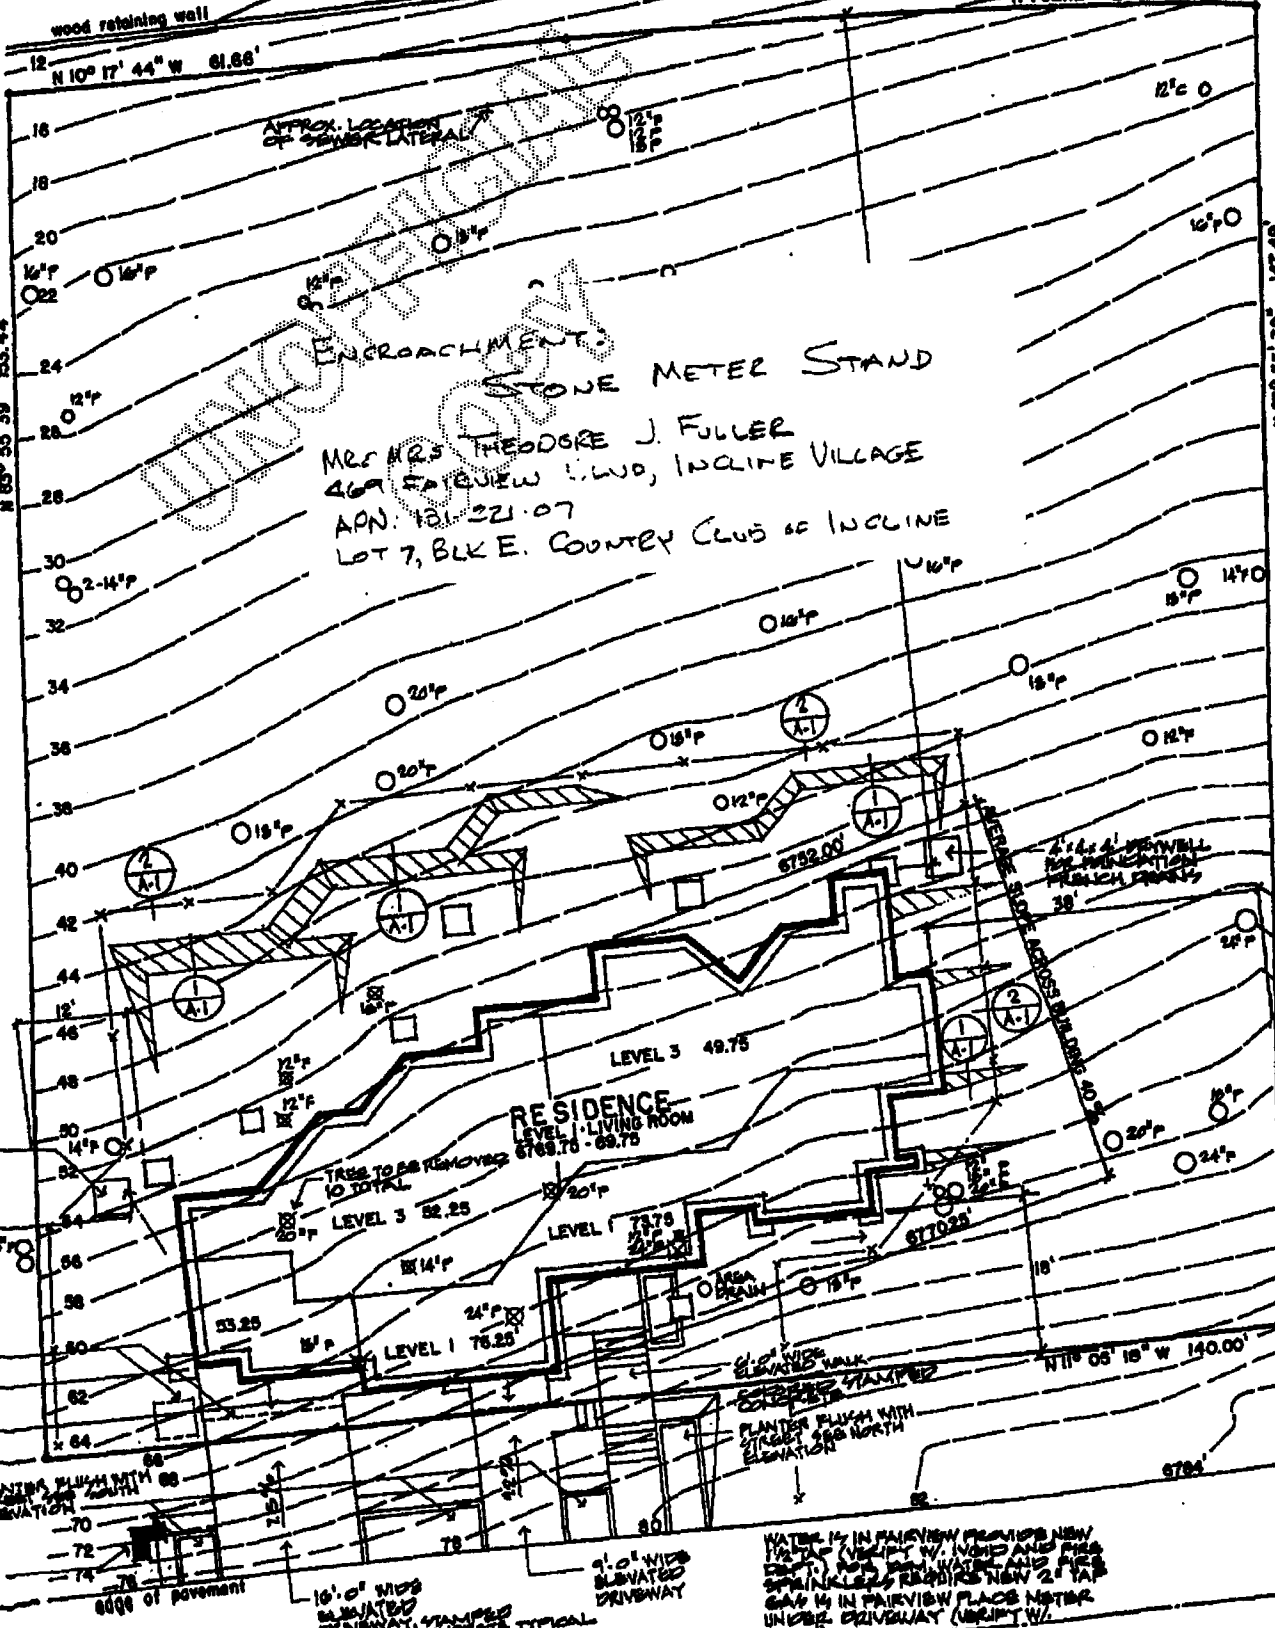 wood retaining wall
12
N 10° 17' 44" W 61.66'
16
18
20
22
24
26
28
30
32
34
36
38
40
42
44
12'
46
48
50
52
54
56
58
60
62
64
66
68
70
72
74
76
APPROX. LOCATION
OF SEWER LATERAL
12"P
12"P
18"P
12"C
16"P
16"P
16"P
18"P
12"P
12"P
UNOFFICIAL
COPY
ENCROACHMENT:
STONE METER STAND
MR & MRS THEODORE J. FULLER
469 FAIRVIEW BLVD, INCLINE VILLAGE
APN: 131-221-07
LOT 7, BLK E. COUNTRY CLUB OF INCLINE
2-14"P
16"P
16"P
18"P
14"P
18"P
20"P
18"P
12"P
20"P
12"P
18"P
2
A-1
1
A-1
2
A-1
1
A-1
1
A-1
2
A-1
1
A-1
6752.00'
4'x4'x4' DRYWELL
FRENCH DRAINS
38'
AVERAGE SLOPE ACROSS BUILDING 40%
24"P
16"P
12"P
12"P
14"P
LEVEL 3 49.75
RESIDENCE
LEVEL 1 LIVING ROOM
6769.75 - 69.75
TREE TO BE REMOVED
10 TOTAL
20"P
20"P
LEVEL 3 52.25
LEVEL 1 73.75
24"P
14"P
24"P
53.25
LEVEL 1 76.25'
6770.25'
AREA
DRAIN
18"P
20"P
24"P
18'
N 11° 05' 18" W 140.00'
6'.0" WIDE
ELEVATED WALK
COLORED STAMPED
CONCRETE
PLANTER FLUSH WITH
STREET SEE NORTH
ELEVATION
6784'
82
80
78
edge of pavement
16'.0" WIDE
ELEVATED
9'.0" WIDE
ELEVATED
DRIVEWAY
WATER IS IN FAIRVIEW PROVIDE NEW
1 1/2" TAP (VERIFY W/ IVGID AND FIRE
DEPT.) FOR DOM. WATER AND FIRE
SPRINKLERS REQUIRE NEW 2" TAP
GAS IS IN FAIRVIEW PLACE METER
UNDER DRIVEWAY (VERIFY W/